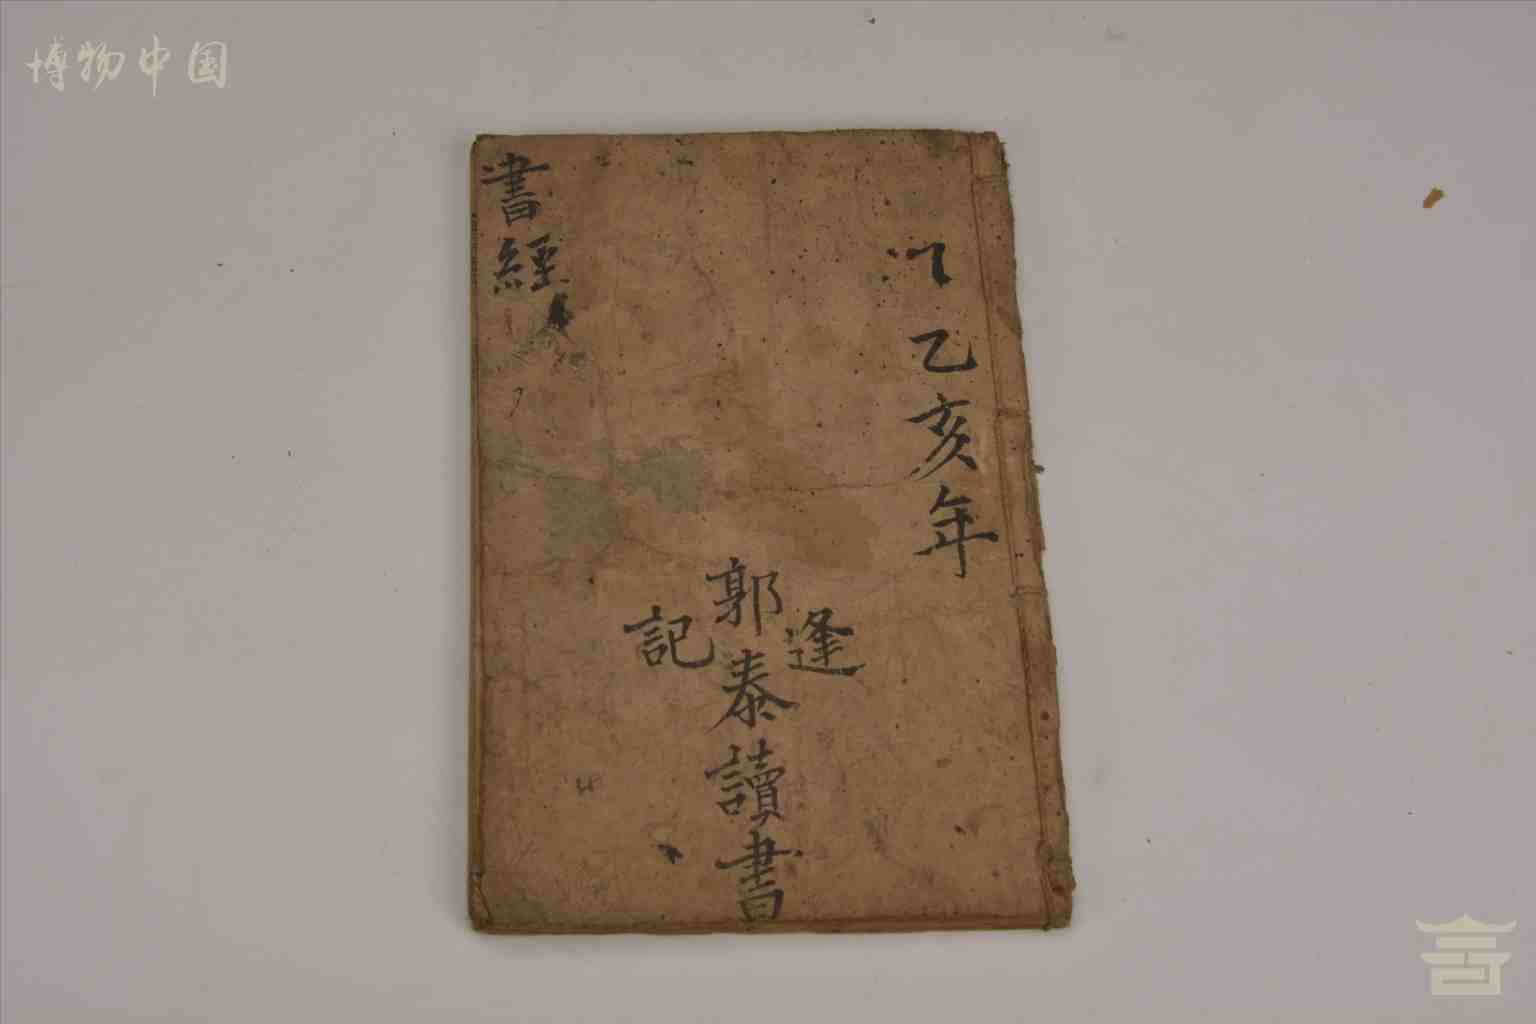 博物中国
書經
乙亥年
逢
郭泰讀書
記